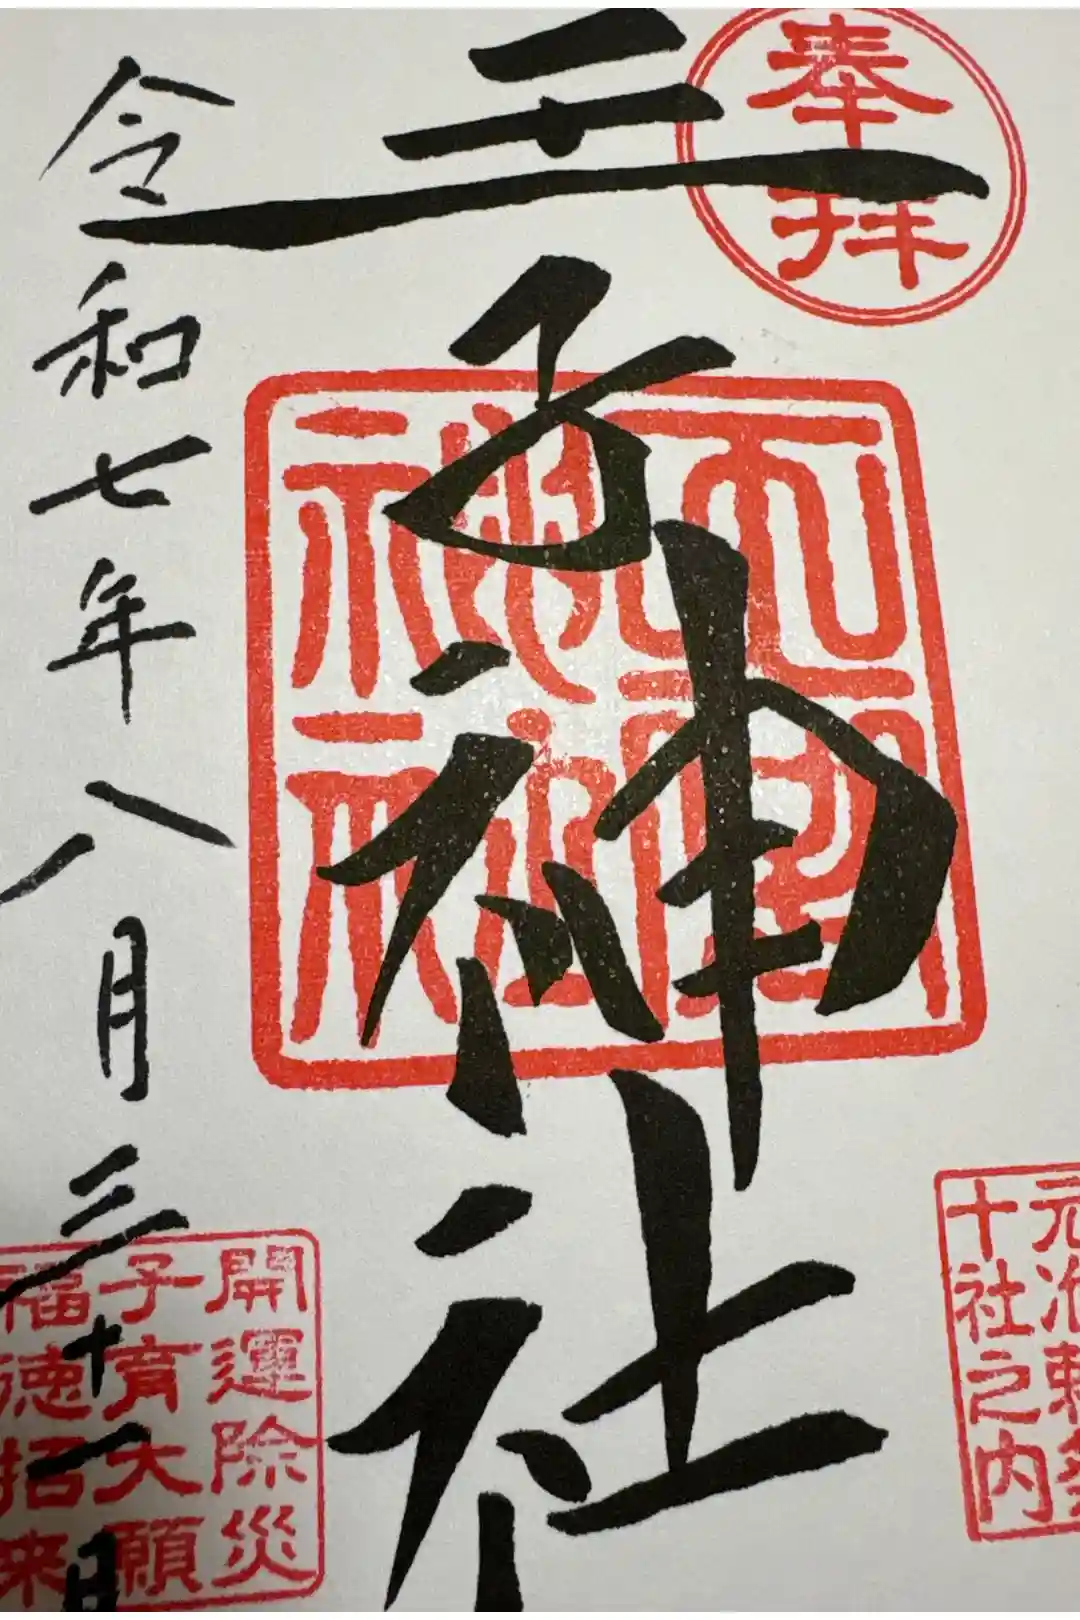 奉拝
元准勅祭
十社之内
王子神社
開運除災
子育大願
福徳招来
令和七年八月三十一日